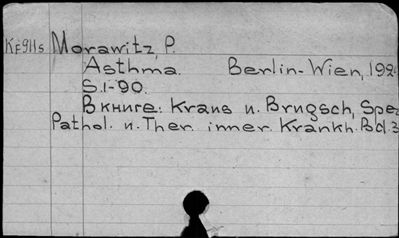 Kf911s Morawitz, P.
Asthma. Berlin-Wien, 192
S. 1-90.
В книге: Kraus u. Brugsch, Spez
Pathol. u. Ther. inner. Krankh. Bd. 3